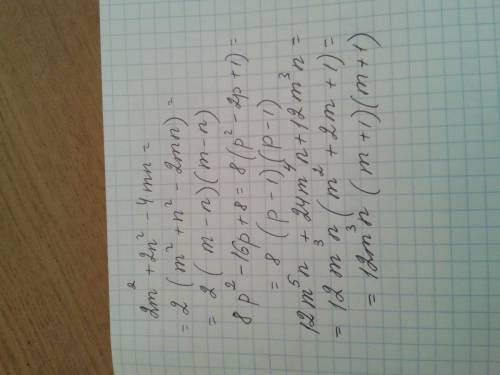 2m² + 2n² - 4mn =
= 2 (m² + n² - 2mn) =
= 2 (m - n)(m - n)
8p² - 16p + 8 = 8(p² - 2p + 1) =
= 8 (p - 1)(p - 1)
12m⁵n + 24m⁴n + 12m³n =
= 12m³n (m² + 2m + 1) =
= 12m³n (m + 1)(m + 1)